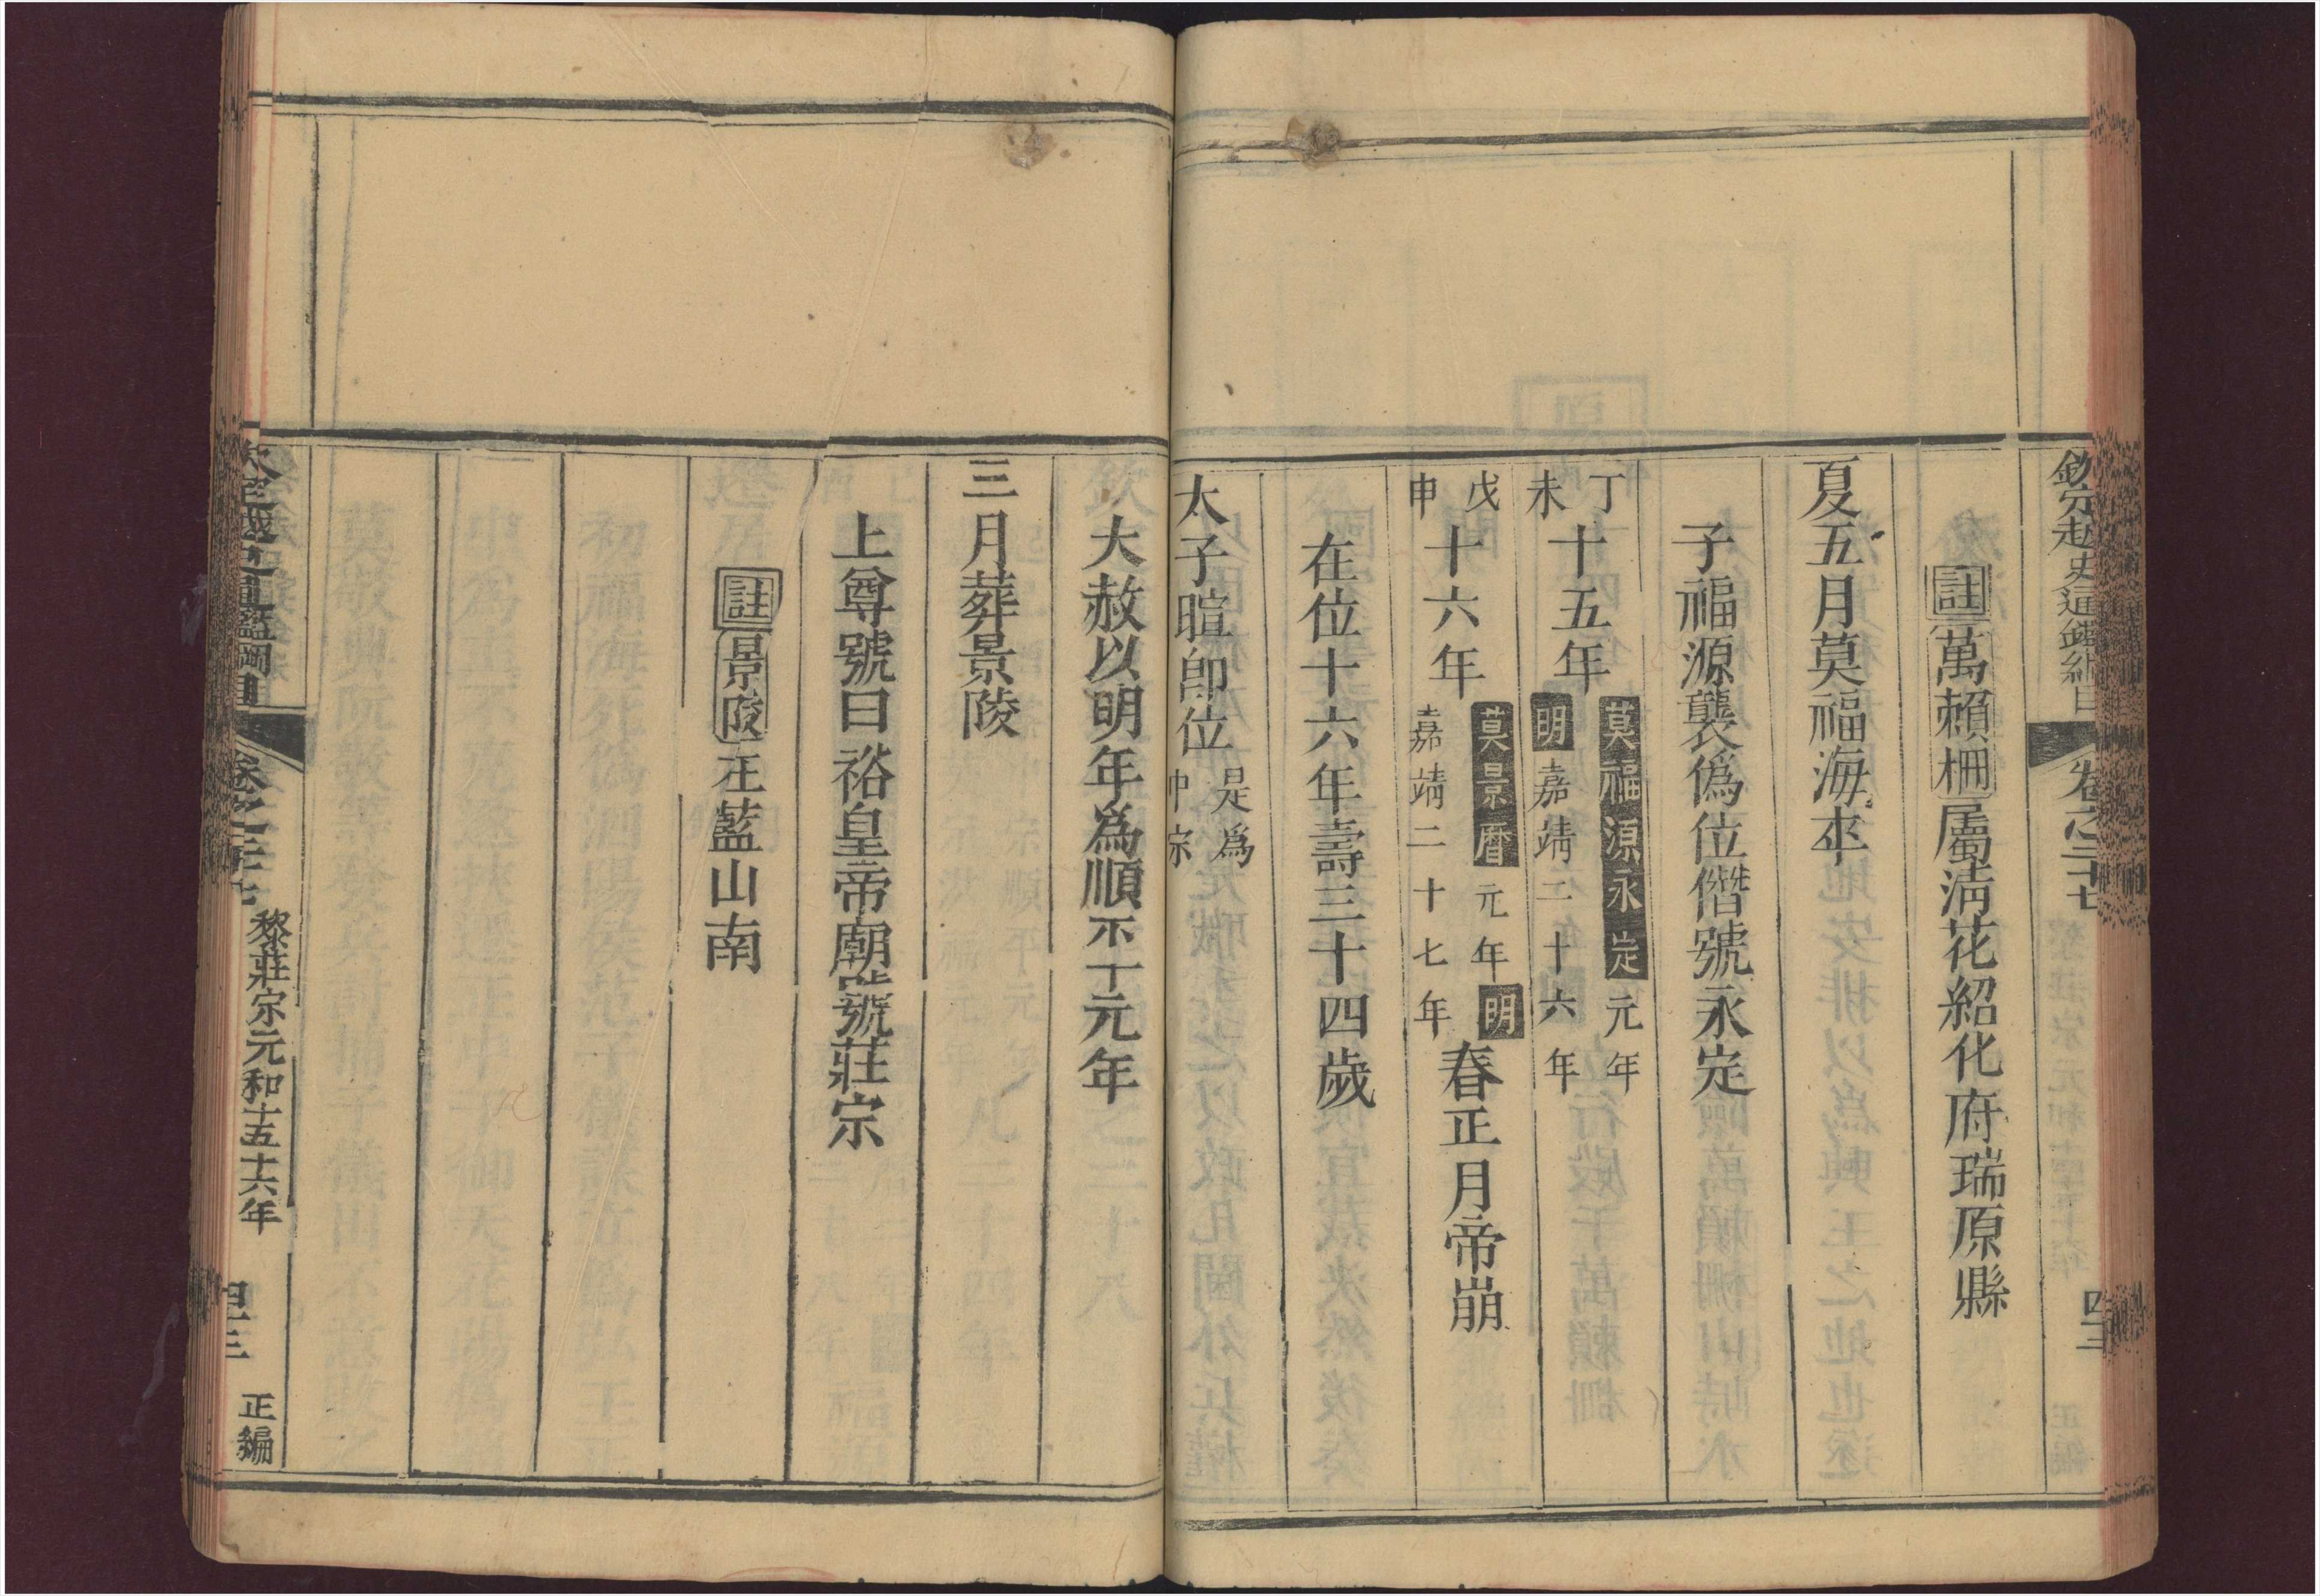 欽定越史通鑑綱目 卷之二十七 四二
註萬賴柵屬淸花紹化府瑞原縣
夏五月莫福海卒
子福源襲僞位僭號永定
丁未十五年莫福源永定元年明嘉靖二十六年
戊申十六年莫景曆元年明嘉靖二十七年春正月帝崩
在位十六年壽三十四歲
太子暄卽位是爲中宗
大赦以明年爲順平元年
三月葬景陵
上尊號曰裕皇帝廟號莊宗
註景陵在藍山南
欽定越史通鑑綱目 卷之二十七 黎莊宗元和十五十六年 四三 正編